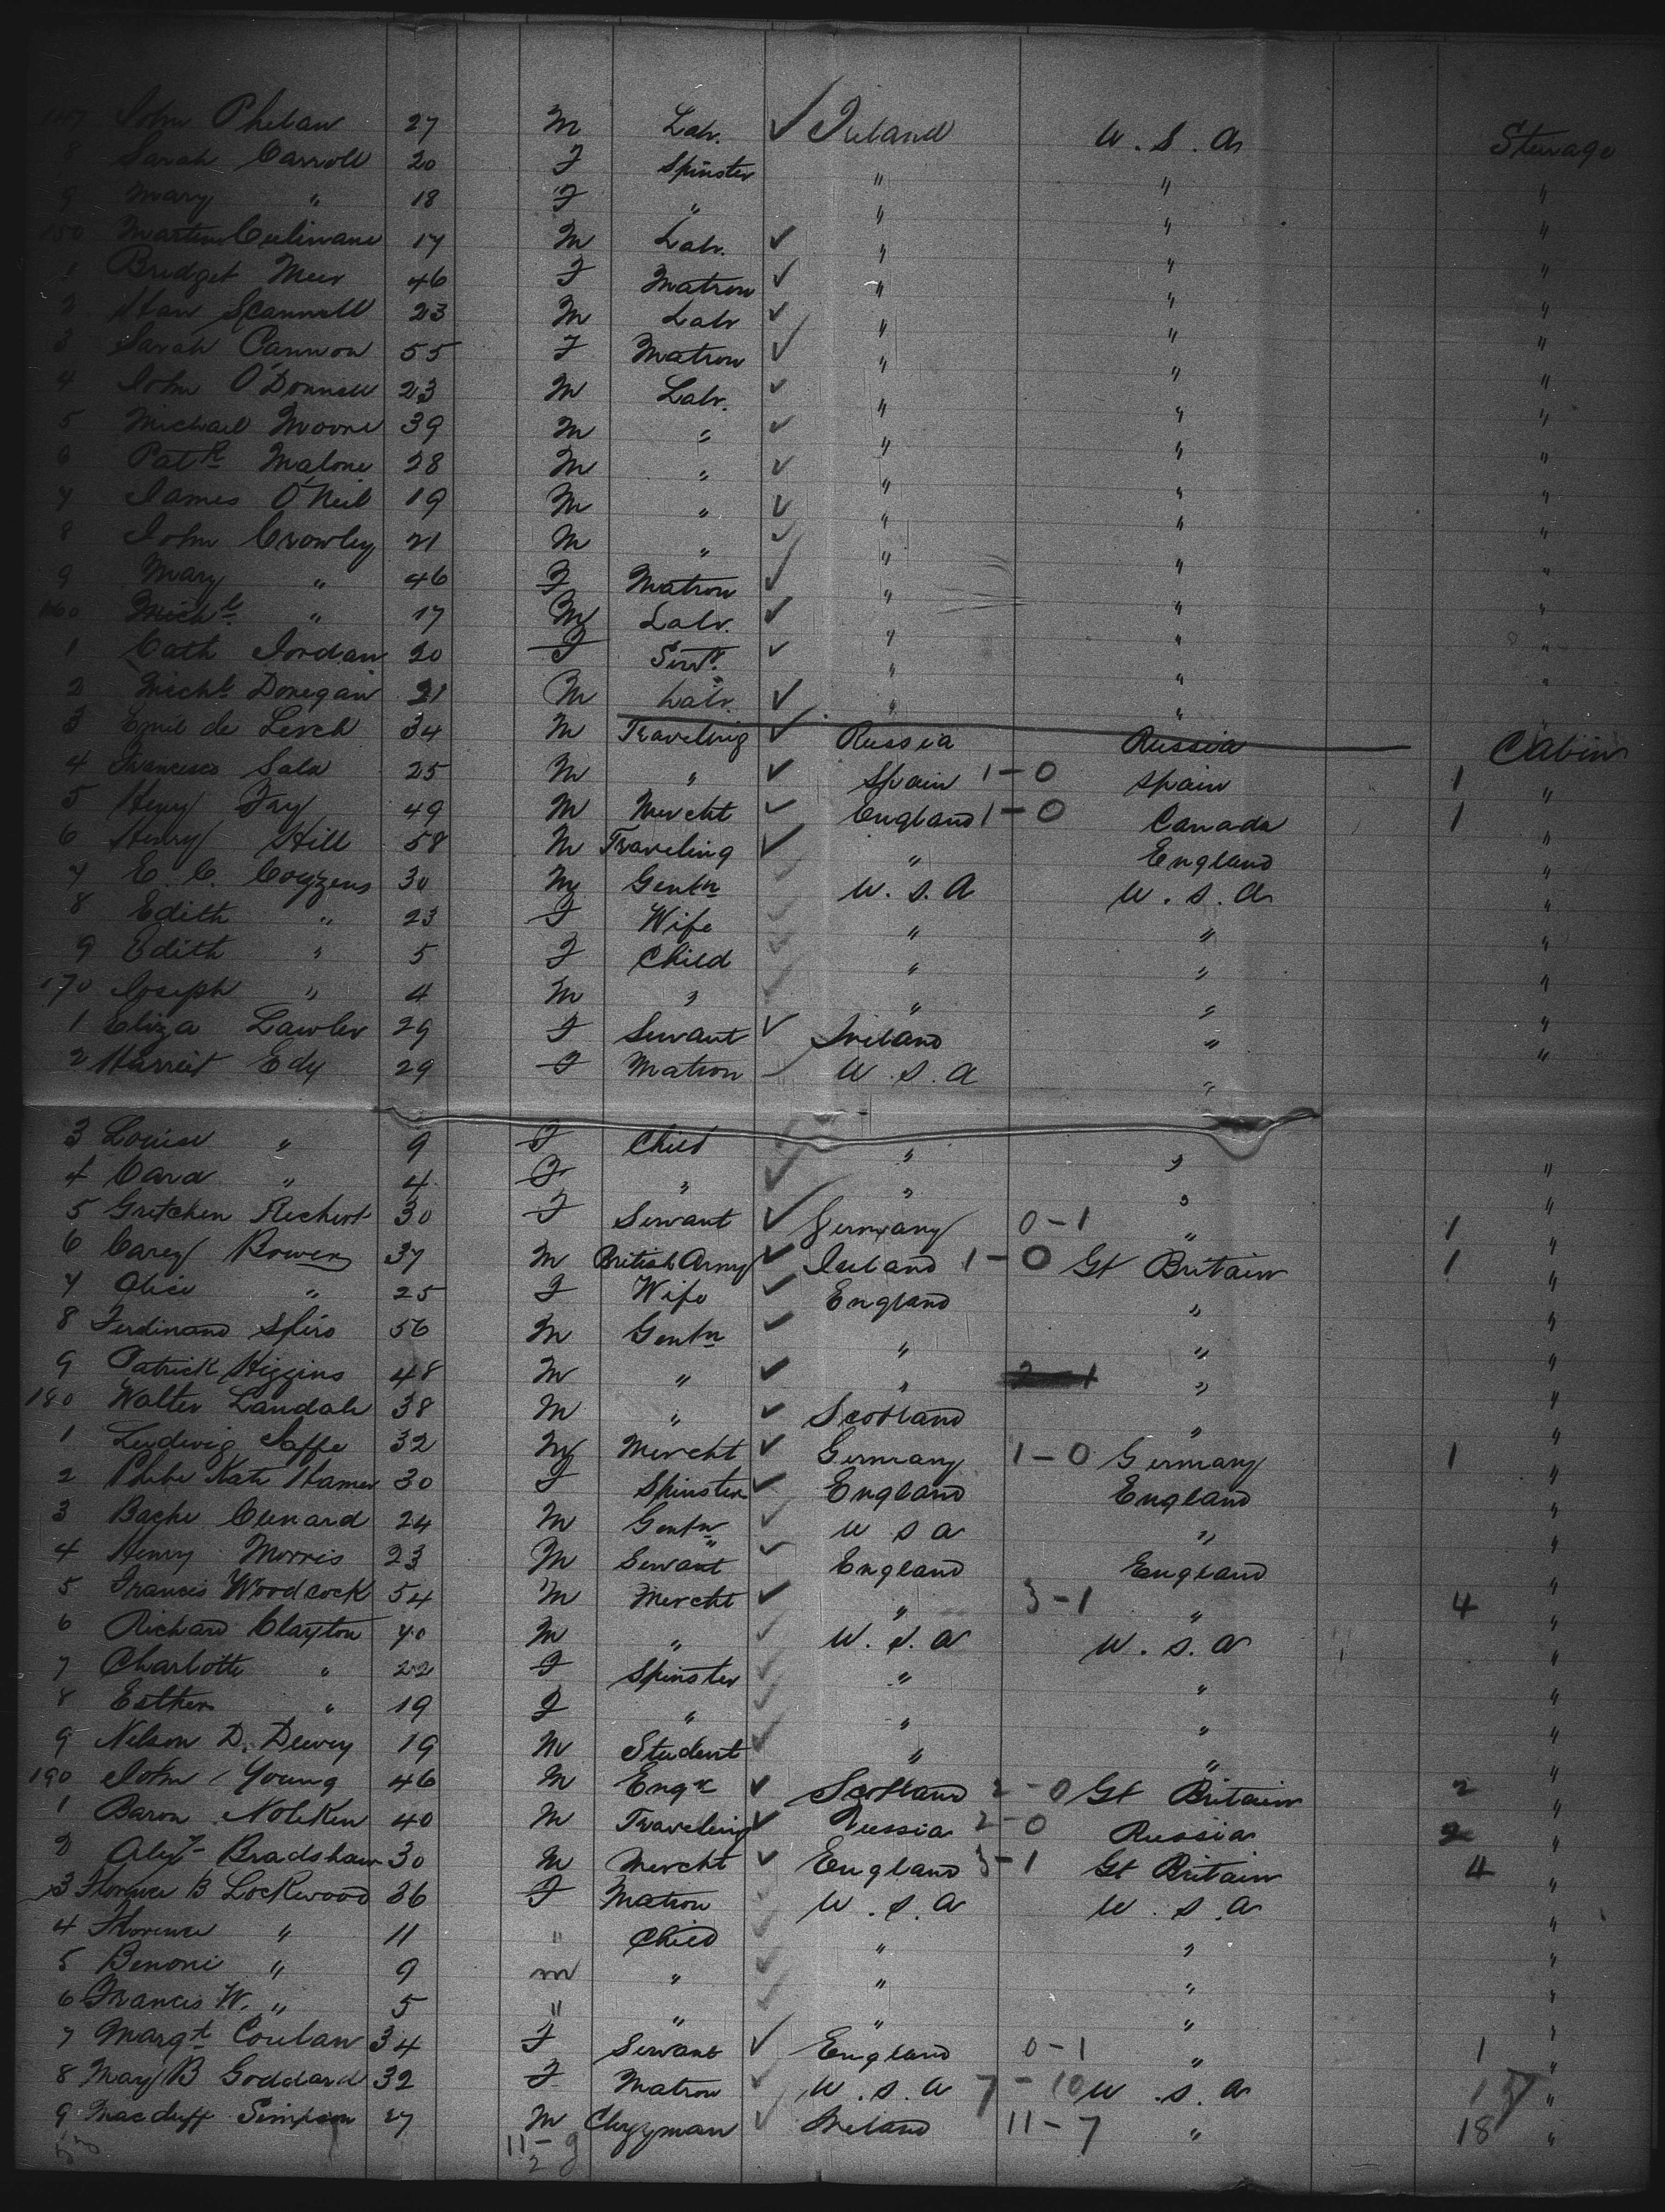 147 John Phelan 27 M Labr. ✓ Ireland U.S.A Steerage
8 Sarah Carroll 20 F Spinster " " "
9 Mary " 18 F " " " "
150 Martin Culinane 17 M Labr. ✓ " " "
1 Bridget Meer 46 F Matron ✓ " " "
2 Scannell 23 M Labr ✓ " " "
3 Sarah Cannon 55 F Matron ✓ " " "
4 John O'Donnell 23 M Labr. ✓ " " "
5 Michael Moore 39 M " ✓ " " "
6 Patk Malone 28 M " ✓ " " "
7 James O'Neil 19 M " ✓ " " "
8 John Crowley 21 M " ✓ " " "
9 Mary " 46 F Matron ✓ " " "
160 Michl " 17 M Labr. ✓ " " "
1 Cath Jordan 20 F Servt. ✓ " " "
2 Michl Donegan 21 M Labr. ✓ " " "
3 Emil de Lerch 34 M Traveling ✓ Russia Russia Cabin
4 Francisco Sala 25 M " ✓ Spain 1-0 Spain 1 "
5 Henry Fry 49 M Mercht ✓ England 1-0 Canada 1 "
6 Henry Hill 58 M Traveling ✓ " England "
7 E. C. Coyzens 30 M Gentn ✓ U.S.A U.S.A "
8 Edith " 23 F Wife ✓ " " "
9 Edith " 5 F Child ✓ " " "
170 Joseph " 4 M " ✓ " " "
1 Eliza Lawler 29 F Servant ✓ Ireland " "
2 Harriet Edy 29 F Matron U.S.A " "
3 Louise " 9 F Child ✓ " " "
4 Cara " 4 F " ✓ " " "
5 Gretchen Rechert 30 F Servant ✓ Germany 0-1 " 1 "
6 Carey Bowen 37 M British Army ✓ Ireland 1-0 Gt Britain 1 "
7 Alice " 25 F Wife ✓ England " "
8 Ferdinand Spiro 56 M Gentn ✓ " " "
9 Patrick Higgins 48 M " ✓ " 2-1 " "
180 Walter Landale 38 M " ✓ Scotland " "
1 Ludwig Jaffe 32 M Mercht ✓ Germany 1-0 Germany 1 "
2 Phebe Kate Hamer 30 F Spinster ✓ England England "
3 Bache Cunard 24 M Gentn ✓ U S A " "
4 Henry Morris 23 M Servant ✓ England England "
5 Francis Woodcock 54 M Mercht ✓ " 3-1 " 4 "
6 Richard Clayton 40 M " ✓ U.S.A U.S.A "
7 Charlotte " 22 F Spinster ✓ " " "
8 Esther " 19 F " ✓ " " "
9 Nelson D. Dewey 19 M Student ✓ " " "
190 John Young 46 M Engr ✓ Scotland 2-0 Gt Britain 2 "
1 Baron Nolcken 40 M Traveling ✓ Russia 2-0 Russia 2 "
2 Alexr Bradshaw 30 M Mercht ✓ England 3-1 Gt Britain 4 "
3 Florence B Lockwood 36 F Matron ✓ U.S.A U.S.A "
4 Florence " 11 " Child ✓ " " "
5 Benoni " 9 m " ✓ " " "
6 Francis W. " 5 " " ✓ " " "
7 Margt Conlan 34 F Servant ✓ England 0-1 " 1 "
8 May B Goddard 32 F Matron ✓ U.S.A 7-10 U.S.A "
9 Macduff Simpson 27 M Clergyman ✓ Ireland 11-7 " 18 "
11-9
2